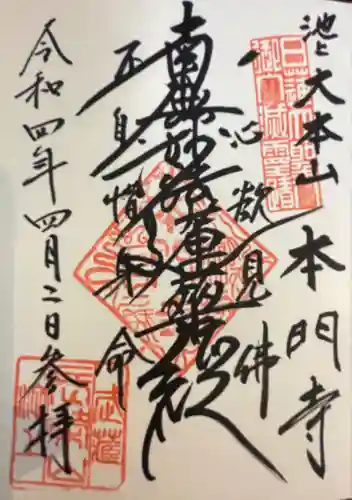 池上
大本山 本門寺
日蓮大聖人
御入滅霊蹟
一心欲見佛
南無妙法蓮華経
不自惜身命
令和四年四月二日参拝